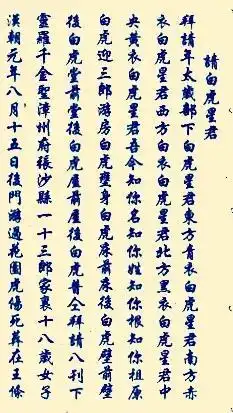 請白虎星君
拜請年太歲部下白虎星君東方青衣白虎星君南方赤
衣白虎星君西方白衣白虎星君北方黑衣白虎星君中
央黃衣白虎星君吾今知你名知你姓知你根知你祖原
白虎迎三郎游房白虎壟身白虎床前床後白虎壁前壁
後白虎堂前堂後白虎厝前厝後白虎普仝拜請八刊下
靈羅千金聖漳州府張沙縣一十三郎家裏十八歲女子
漢朝元年八月十五日後門游過花園虎傷死葬在王條